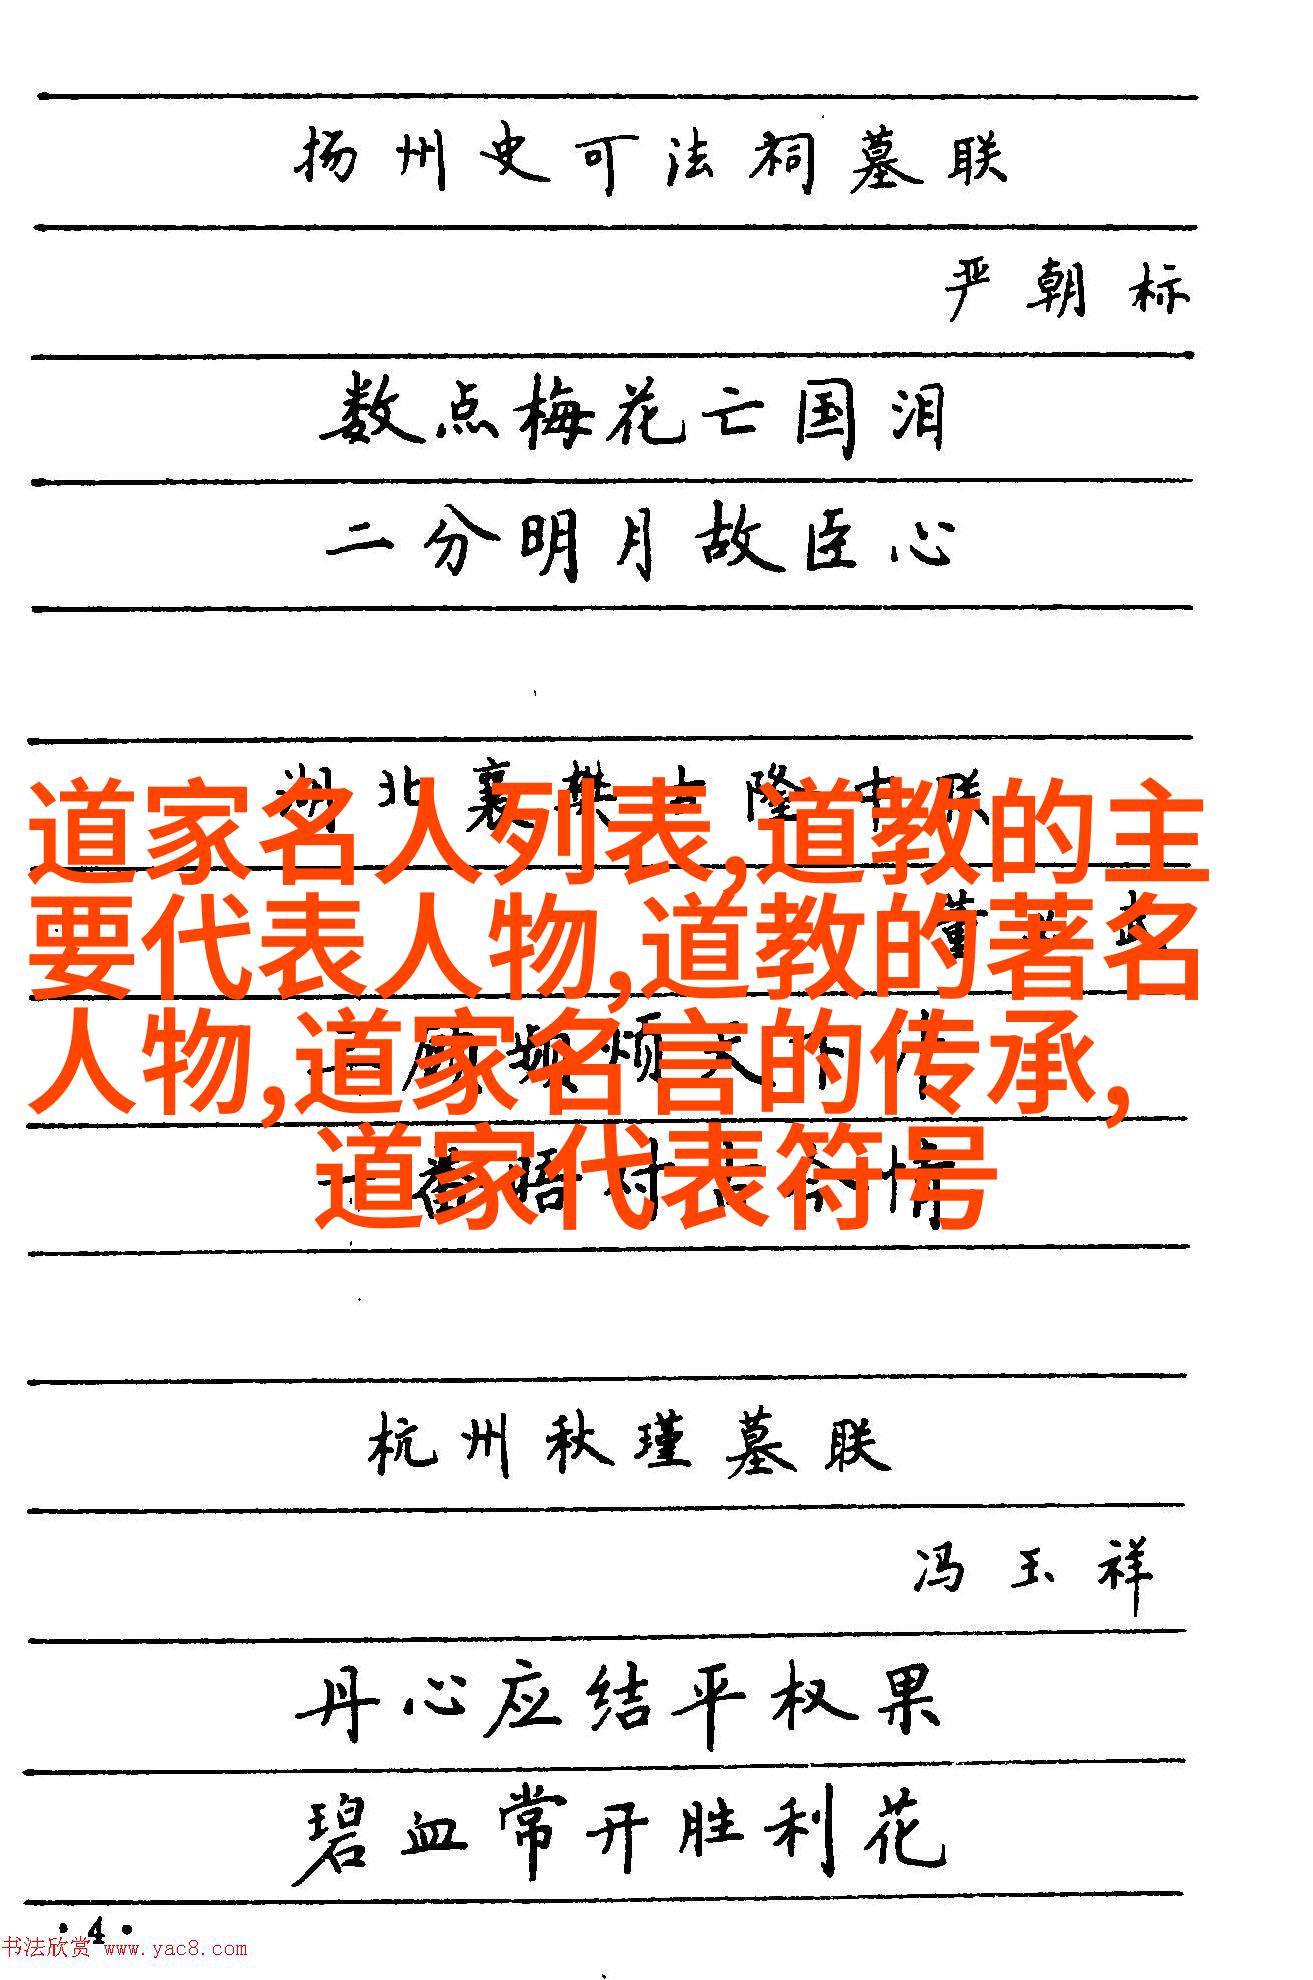 扬州史可法祠墓联
严朝标
数点梅花亡国泪
二分明月故臣心
道家名人列表,道教的主
要代表人物,道教的著名
人物,道家名言的传承,
道家代表符号
杭州秋瑾墓联
冯玉祥
丹心应结平权果
碧血常开胜利花
·4·
书法欣赏 www.yac8.com